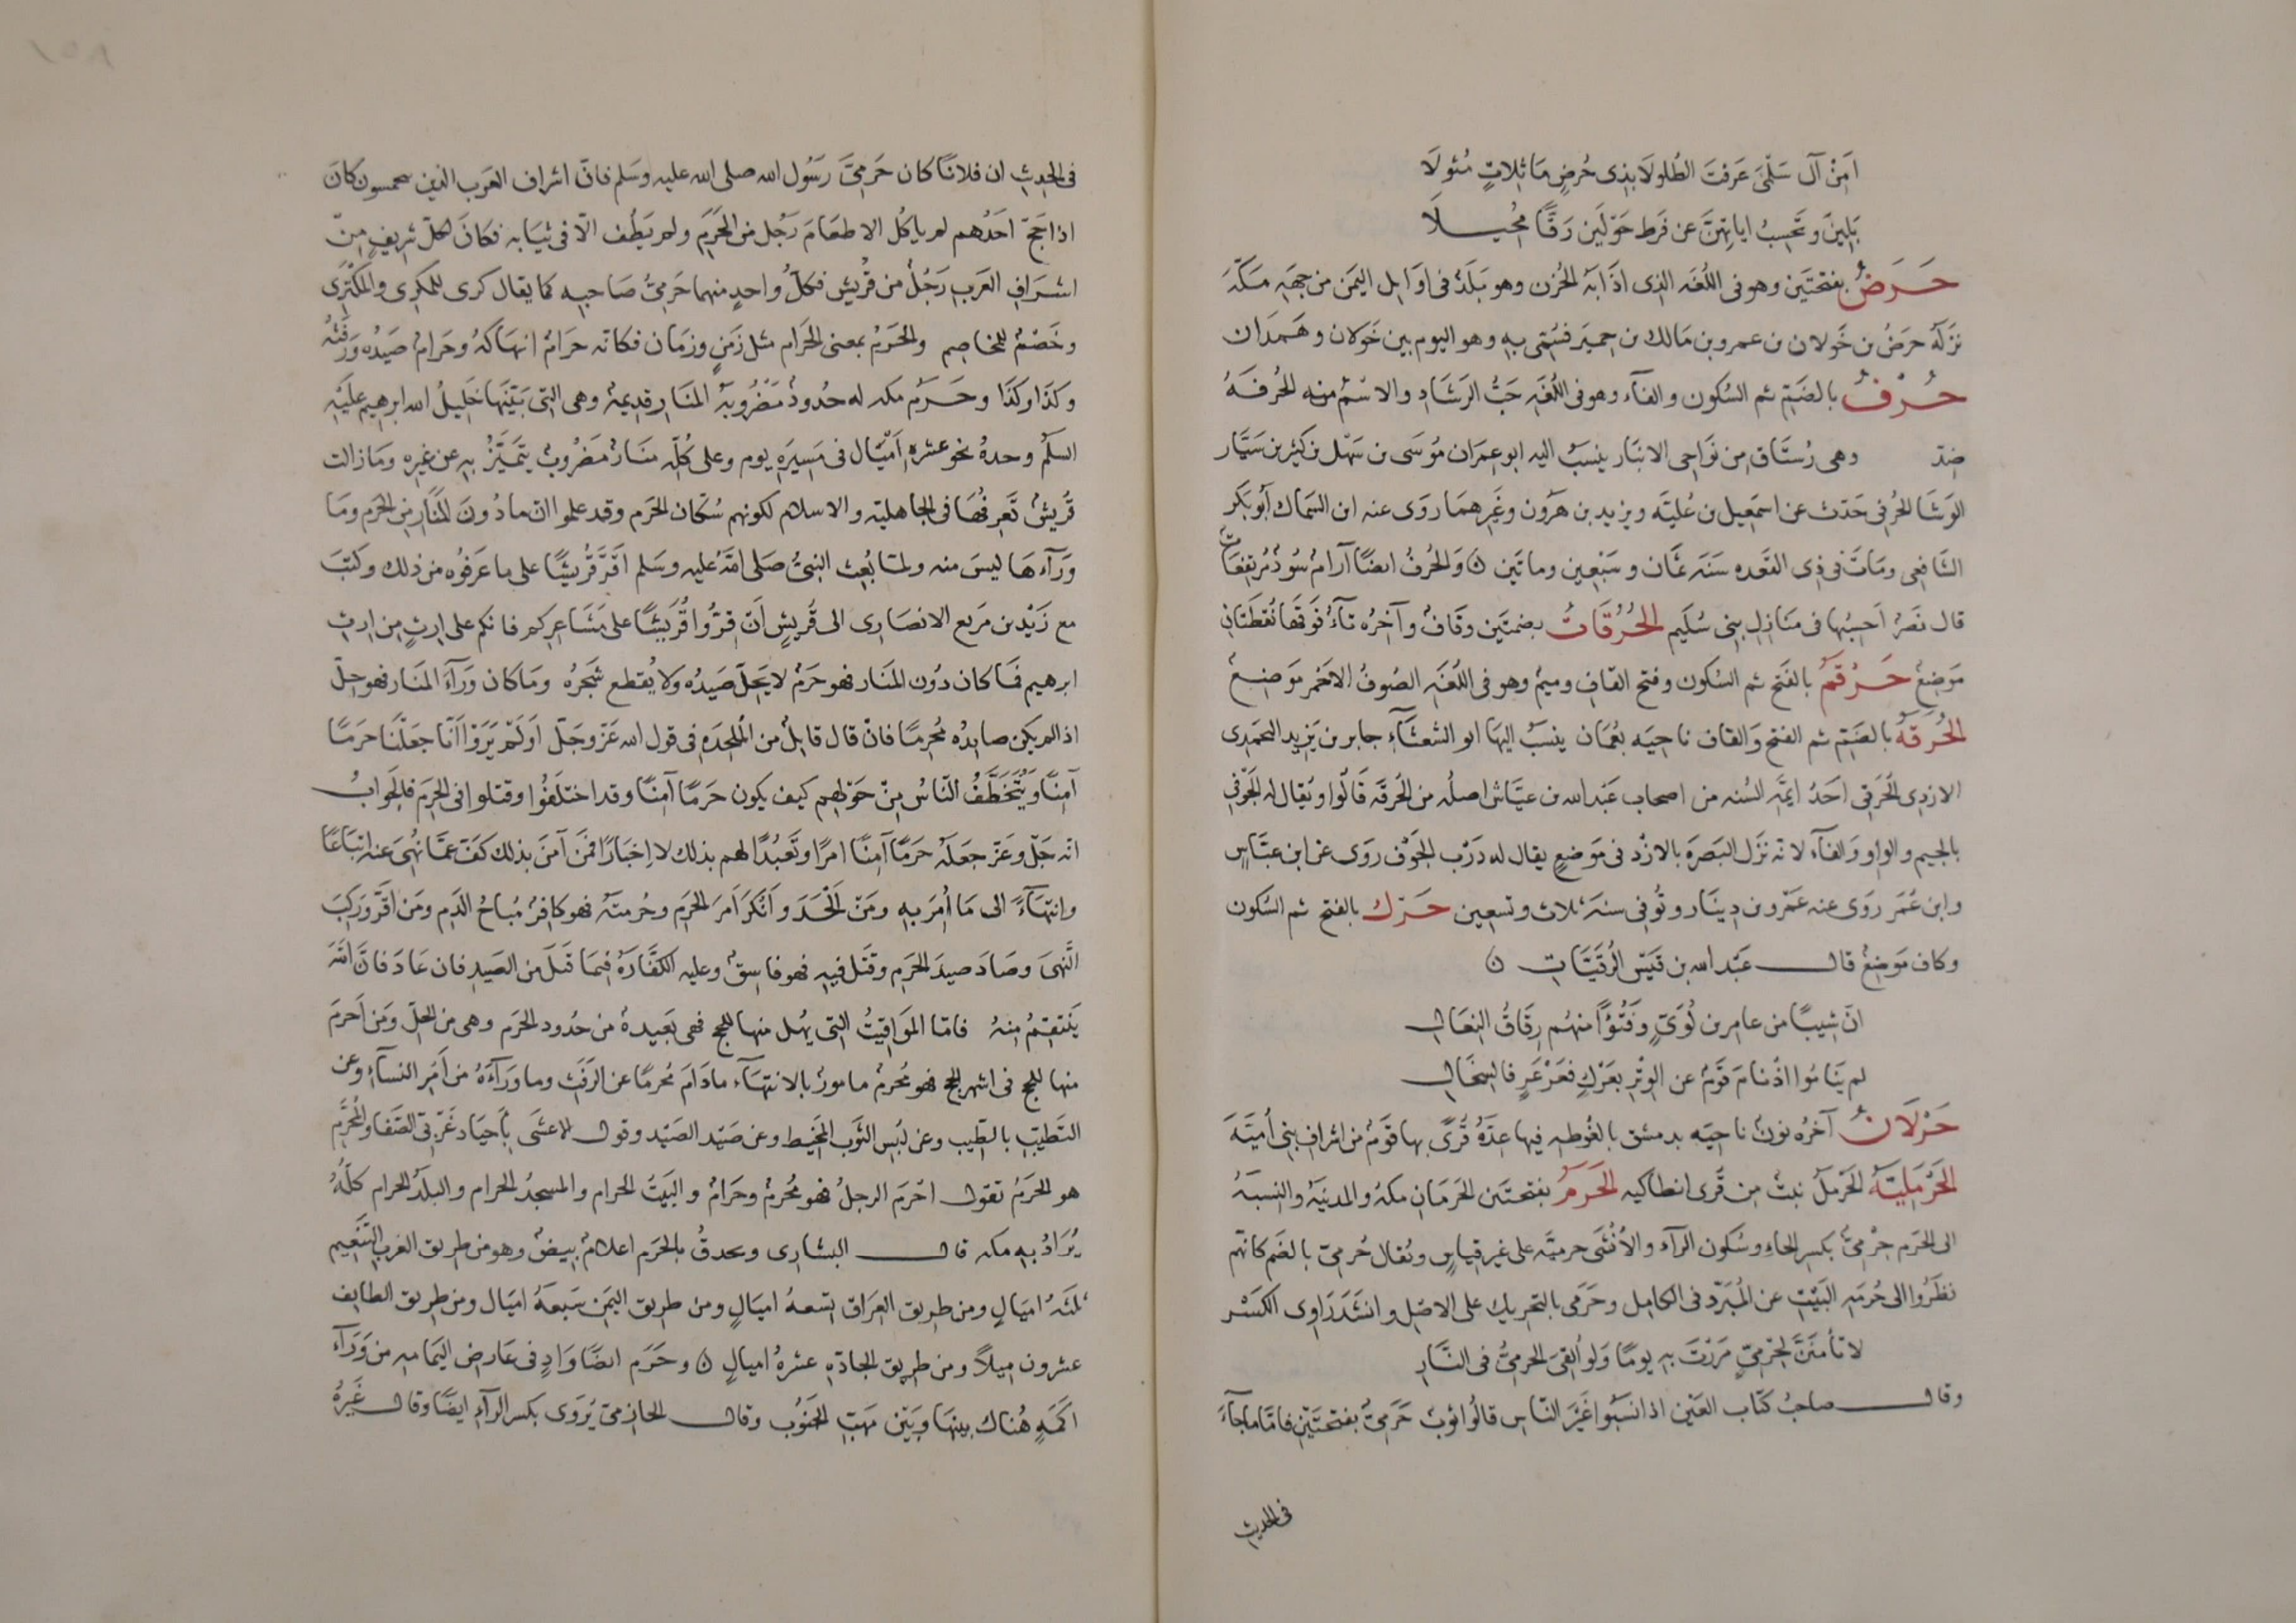 امِنْ آل سَلْمَى عَرَفْتَ الطُلولَا بذِى حُرضٍ مَاثِلاتٍ مُثولَا
بَلِينَ وتَحْسِبُ اياتِهِنَّ عن فَرط حَوْلَين رَقًّا مُحِيلَا
حَرَضٌ بفتحتَين وهو فى اللُغَه الذى اذَابَهُ الحُزن وهو بَلَدٌ فى اوَايل اليمَن من جهَةِ مَكَّةَ
نزَلَهُ حرَضُ بن خَولان بن عمرو بن مَالك بن حِميَر فسُمّى بهِ وهو اليوم بين خَولان وهَمدَان
حُرْفٌ بالضَمّ ثم السُكون والفآء وهو فى اللُغَهِ حَبُّ الرَشَادِ والاسْمُ منه الحُرفَهُ
ضِدّ وهى رُستَاق مِن نَواحِى الانبَار ينسَبُ اليه ابو عِمرَان مُوسَى بن سَهْل بن كَثير بن سَيَّار
الوَشَّا الحُرفى حَدّث عن اسمَعِيل بن عُليَّه ويزيد بن هَرُون وغَيرهمَا روَى عنه ابن السَمَّاك أبُو بَكر
الشَافِعى ومَاتَ فى ذِى القَعدَه سَنَه ثمَان وسَبْعِين وماتَين ۞ وَالحُرفُ ايضًا آرَامٌ سُودٌ مُرتفِعَات
قال نَصْرٌ احَسِبُها فى مَنَازِل بنِى سُلَيم الحُرُقَاتُ بضمتَين وقَافٌ وآخِرُه تآءٌ فَوقَهَا نُقطَتَانِ
مَوضِعٌ حَرْقَمٌ بالفَتح ثم السُكون وفتح القافِ وميمٌ وهو فى اللُغَهِ الصُوفُ الاحَمر مَوضِعٌ
الحُرَقَهُ بالضَمّ ثم الفتح وَالقاف ناحِيَه بعُمَان ينسَبُ اليهَا ابو الشعثَآءِ جابر بن يَزيد اليَحمَدِى
الازدِى الحُرَقى احَدُ ايمَّهِ السُنه من اصحاب عَبْدالله بن عبَّاس اصلُه من الحُرقَه قَالُوا ويُقال لهُ الجَوْفى
بالجيم والواو وَالفآء لانه نزَل البَصرَه بالازْد فى مَوضعٍ يقال له دَرْب الجَوْف روَى عن ابن عبَّاسٍ
وابن عُمَر روَى عنه عَمْرو بن دِينَار وتُوفى سنَةَ ثلاث وتسعِين حَرْك بالفتح ثم السُكون
وكاف مَوضِعٌ قال عَبْدالله بن قَيسِ الرُقَيَّات ۞
انّ شِيبًا من عامِر بن لُوَىٍّ وَفُتُوًّا منهُم رِقَاقُ النِعَالِ
لم ينَامُوا اذْ نَامَ قَوْمٌ عن الوِتْرِ بعَرْكٍ فعَرْعَرٍ فالسِخَالِ
حَرْلَانُ آخِرُه نونٌ ناحِيَه بدمشق بالغُوطه فيها عِدّهُ قُرًى بها قَوْمٌ من اشراف بَنِى أُميَّهَ
الحَرْمَلِيَّهُ الحَرْمَلُ نبتٌ مِن قُرى انطاكيه الحَرَمُ بفتحتَين الحَرَمَانِ مكهُ والمدينَهُ والنِسبَهُ
الى الحَرَم حِرْمىٌّ بكسرِ الحاءِ وسُكون الرآء والأُنْثَى حرميَّه على غير قِياسٍ ويُقال حُرمِىّ بالضَم كانهّم
نظرُوا الى حُرمَهِ البَيْتِ عن المُبَرّد فى الكامِل وحَرَمى بالتحريك على الاصْل وانشَدَ رَاوِى الكسْر
لا تأمنَنَّ لحِرمِىٍّ مَرَرْتَ بهِ يومًا وَلو أُلقِىَ الحِرمىُّ فى النَّارِ
وقال صاحبُ كتَاب العَيْن اذا نسَبُوا غَيْرَ النّاس قالُوا ثوبٌ حَرَمىٌّ بفتحتَيْن فامَّا ما جآءَ
فى الحديثِ
فى الحديثِ ان فلانًا كان حَرَمىَّ رَسُول الله صلى الله عليه وسَلم فانّ اشراف العَرب الذين يتحمسون كانَ
اذا حَجّ احَدُهم لم ياكُل الا طعَامَ رَجُل من الحَرَمِ ولم يَطُف الّا فى ثيَابه فكانَ لكلّ شرِيفٍ مِنْ
اشرَافِ العَرب رَجُلٌ من قُريش فكلُّ واحدٍ منهما حَرَمىُّ صَاحبِه كما يقال كرى للمُكرِى والمُكتَرِى
وخَصْمٌ للمخاصِم والحَرَمُ بمعنى الحَرام مثل زَمَنٍ وزمَان فكانه حرَامٌ انتهَاكهُ وحَرامٌ صَيدُه ورَفثُهُ
وكذَا وكَذَا وحَرَم مكه له حُدودٌ مَضْرُوبَهُ المنَار قدِيمهٌ وهى التى بَيَّنَهَا خَليلُ الله ابرهيم عليْهِ
السلَمُ وحدهُ نحو عشره أمْيَال فى مَسِيَرهِ يوم وعلى كُلّهِ منَارٌ مَضرُوبٌ يَتمَيَّزُ بهِ عن غيره ومَا زالت
قُريشٌ تعرفُهَا فى الجاهليّه والاسلام لكونهم سُكّان الحرَم وقد علموا انّ ما دُونَ المنَارِ من الحَرم ومَا
ورَآءهَا ليسَ منه ولمّا بُعِث النبىُّ صَلى اللهُ عليه وسَلم اقَرَّ قُريشًا على ما عَرَفُوه من ذلك وكتَبَ
مع زَيْد بن مَربع الانصَارى الى قُريشٍ أنْ قِرُّوا قُرَيشًا على مَشَاعِركم فانكم على ارثٍ مِن ارث
ابرهيم فمَا كان دُون المنَار فهو حرَمٌ لا يَحِلُّ صَيدُه ولا يُقطع شَجَرُه ومَا كان ورَآءَ المنَار فهو حِلّ
اذا لم يكن صايدُه مُحرِمًا فانْ قال قايِلٌ من المُلحِدَهِ فى قول الله عَزّ وجَلّ اوَلَمْ يَرَوْا أنّا جَعَلْنَا حرَمًا
آمِنًا وَيُتَخَطَّفُ النّاسُ مِنْ حَوْلِهِم كيف يكون حَرمًا آمِنًا وقد اختلَفُوا وقتلوا فى الحَرَم فالجَوابُ
انّه جَلّ وعَزّ جعَلَهُ حَرمًا آمِنًا امرًا وتَعَبُدًا لهم بذلك لا اِخبَارًا فَمن آمَنَ بذلك كفّ عمَّا نُهىَ عنه اتبَاعًا
وانتهآءً الى مَا أُمرَ بهِ ومَنْ الْحَدَ وانْكَر امرَ الحَرَم وحُرمتَهُ فهو كافِرٌ مُباحُ الدَمِ ومَن اقرّ ورَكبَ
النَّهىَ وصَادَ صيدَ الحَرَم وقتَل فِيهِ فهو فاسِقٌ وعليه الكفّارَهُ فيما قتَلَ من الصَيد فان عَادَ فانَّ اللهَ
يَنتَقِمُ مِنهُ فامّا المَوَاقِيتُ التى يهل منها للحج فهى بعَيدهٌ من حُدود الحَرم وهى من الحِلّ ومَن احرَمَ
منها للحج فى اشهر الحج فهو مُحرِمٌ مامورٌ بالانتهآء مادَامَ مُحرمًا عن الرَفَث وما ورَآءَهُ من أمرِ النسآءِ وعن
التَطيّب بالطِيب وعن لبْس الثَوب المخِيط وعن صَيْد الصَيْد وقول الاعشَى بأَجيَاد غَرْبِىّ الصَفَا والمُحَرَّم
هو الحَرَمُ تقول احْرَم الرجلُ فهو مُحْرمٌ وحَرامٌ والبَيتُ الحرام والمسجدُ الحرام والبلَدُ الحرام كلُهُ
يُرَادُ بهِ مكه قال البشارى ويحدقُ بالحَرم اعلامٌ بِيضٌ وهو من طريق الغرب التَنعِيم
ثلثَهُ اميَالٍ ومن طريق العِرَاق تسعهُ اميَالٍ ومن طريق اليمَن سَبعَهُ اميَال ومن طريق الطايف
عشرون ميلاً ومن طريق الجادّهِ عشرهُ اميالٍ ۞ وحَرَم ايضًا وَادٍ فى عَارض اليمَامه من وَرَآء
اكمَهٍ هُناك بينهَا وبَيْن مَهَبّ الجَنوُب وقال الحازمىّ يُروَى بكسر الرآءِ ايضًا وقال غَيرُهُ